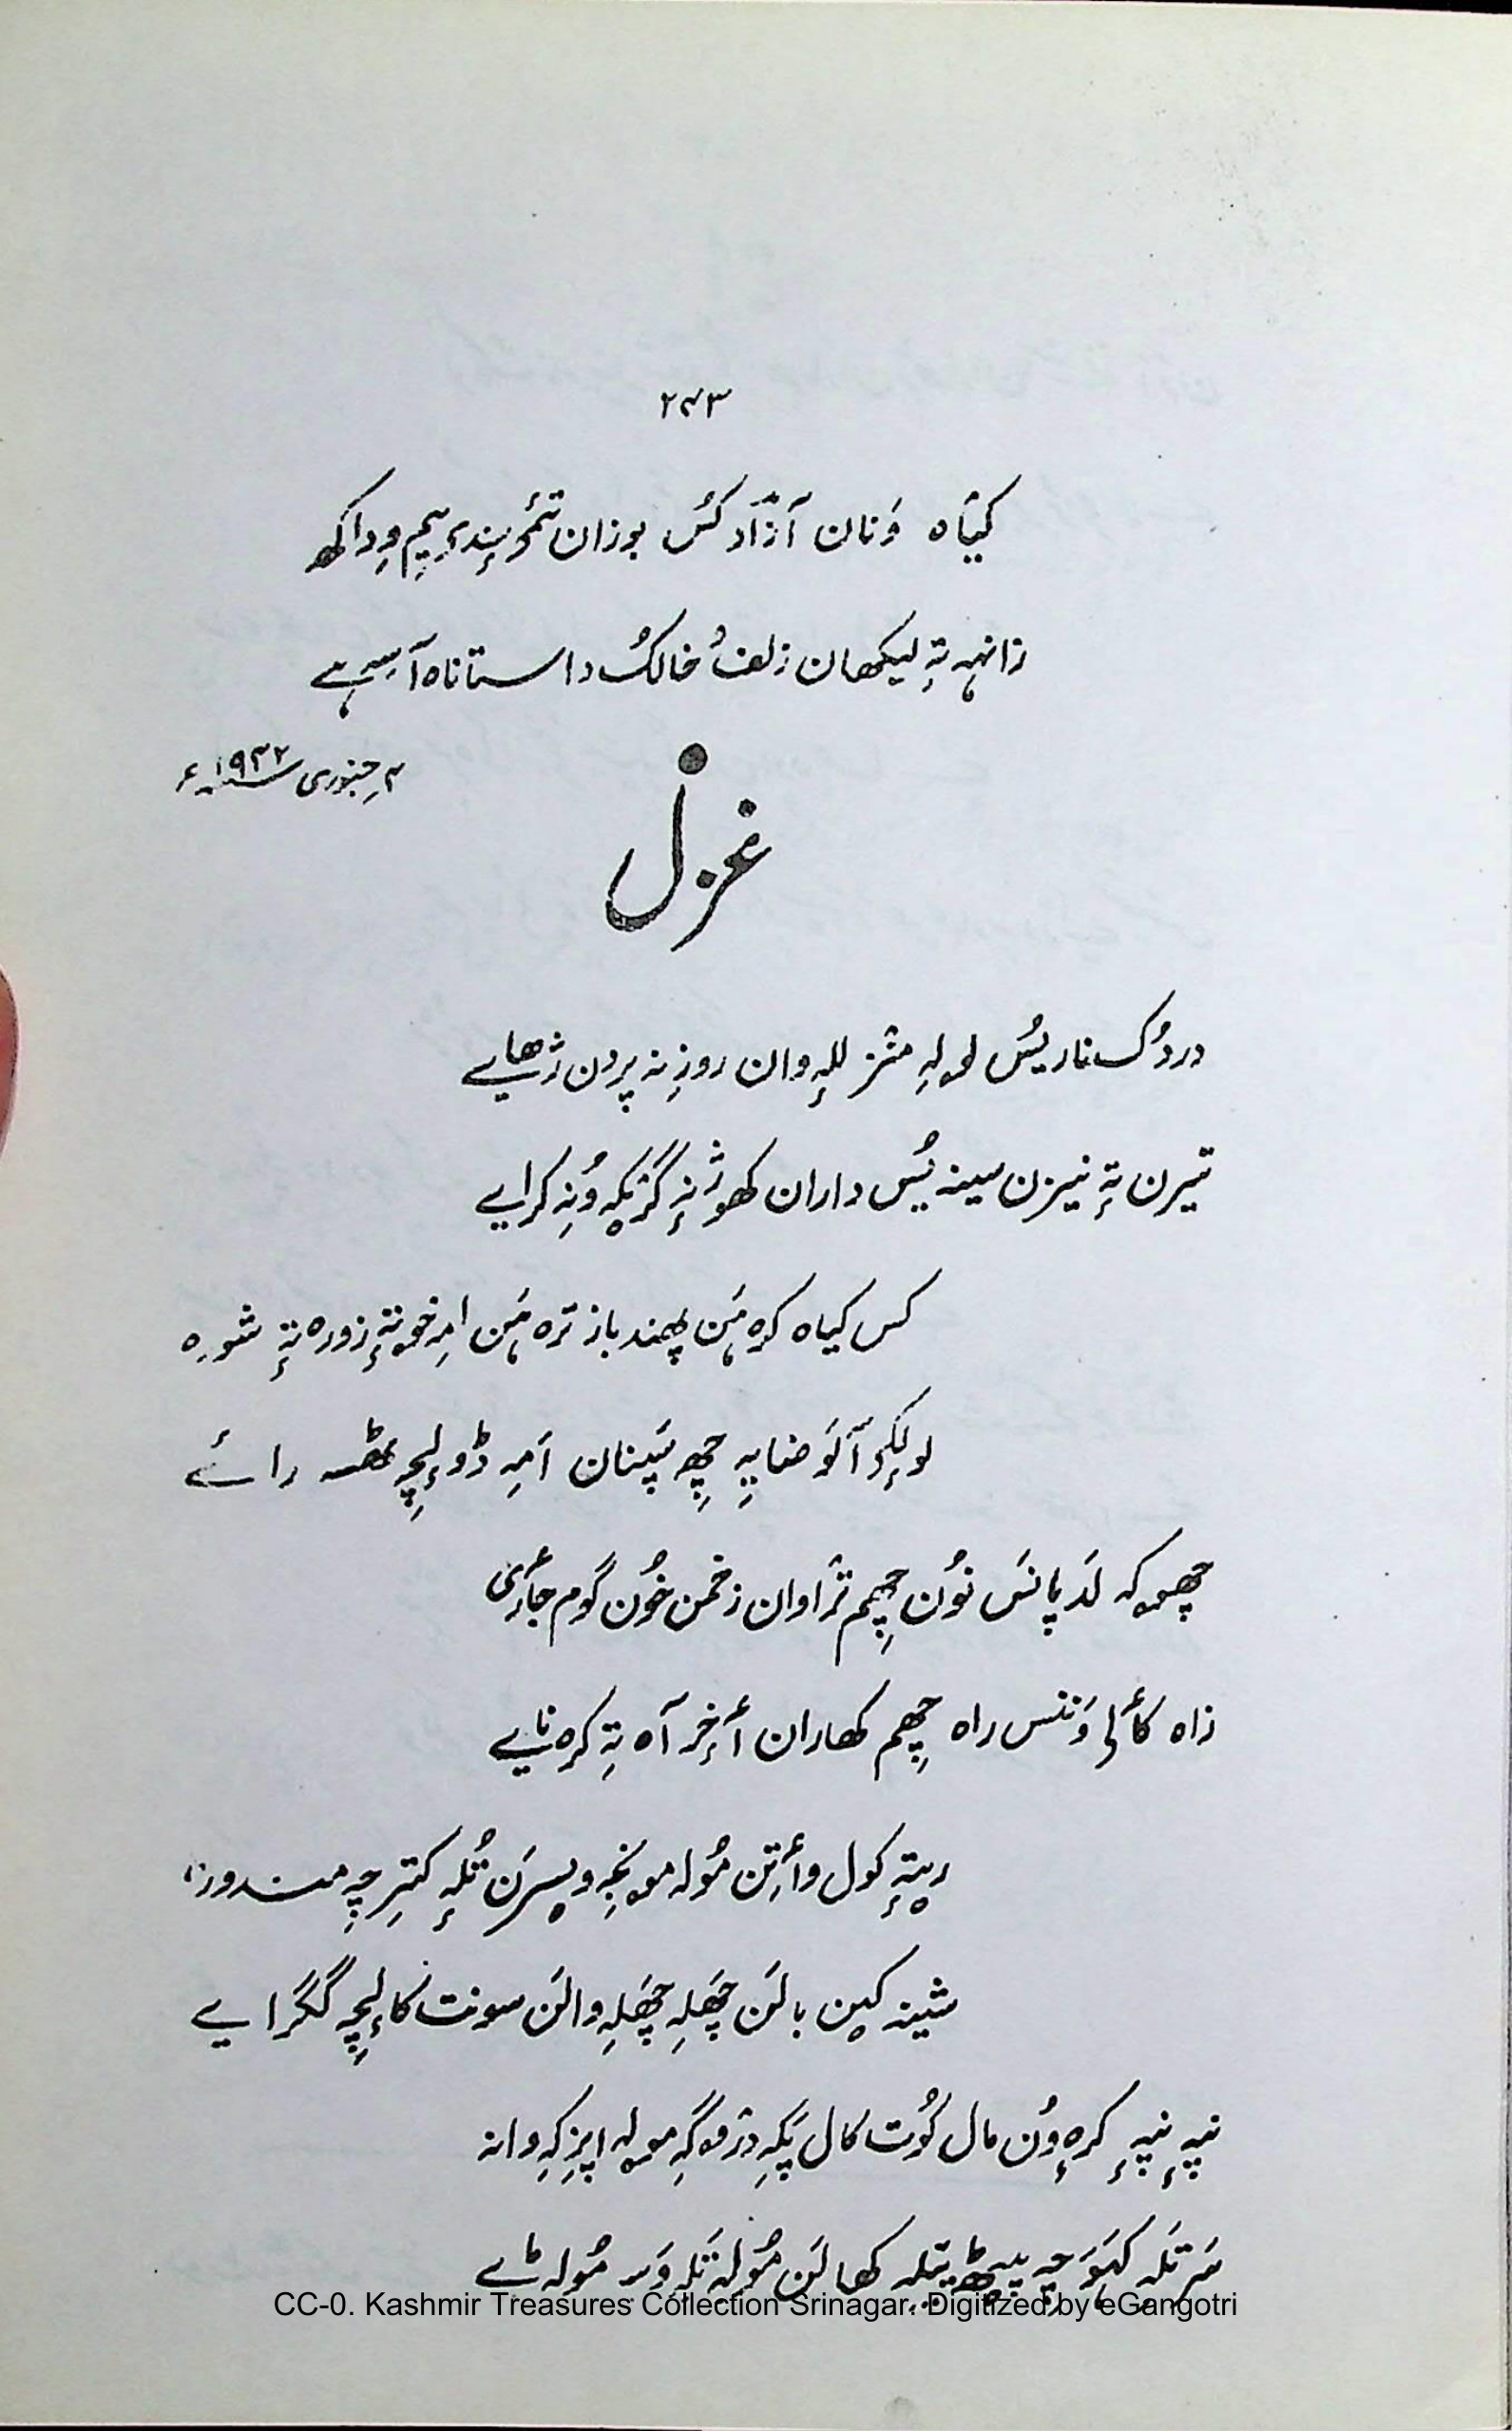 ۲۴۳
کیٛاہ وَنان آزٛاد کُس بوزان تٔمۍ سٕندۍ یِم وِداکھ
زانہہ تہٕ لیکھان زلفُ خالُک داستاناہ آسہِ ہے
۴ جنوری ۱۹۳۲ء
غزل
دردُک نار یُس لولہِ منٛز للہٕ وان روزِ نہ پردن ژھایے
تیرن تہٕ نیزن سینہ یُس داران کھوژِ نہٕ گزٕکہِ وُنہِ کرایے
کس کیاہ کرہ ہَن پھند باز ترہ ہَن امہِ خوتہٕ زورہ تہٕ شورہ
لولٕکۍ آلَو ضایہِ چھِ سَپنان اَمہِ ڈولہٕ چہِ ٹھسہ رائے
چھوکہ لَد پانَس نوٗن چھِم ترٛاوان زخمن خوٗن گوم جأری
زاہ کألۍ وَننس راہ چھِم کھاران أخِر آہ تہٕ کرہ نایے
ریتہٕ کول وأتِن موٗلہ مونجہِ ویسرَن تُلہٕ کترِ چہِ مندورٕ
شینہ کین بالَن چَھلہِ چَھلہِ والَن سونت کالٕچہِ گگرایے
نیہٕ نیہٕ کرہٕ وُن مال کُوت کال پَکہِ درٛوگہِ مولہ اپزِکہِ وانہ
سَرتَلہِ کہوَچہِ پیٹھ ییلہِ کھالَن موٗلہٕ تَلہٕ وَسہِ موٗلہ ٹے
CC-0. Kashmir Treasures Collection Srinagar. Digitized by eGangotri